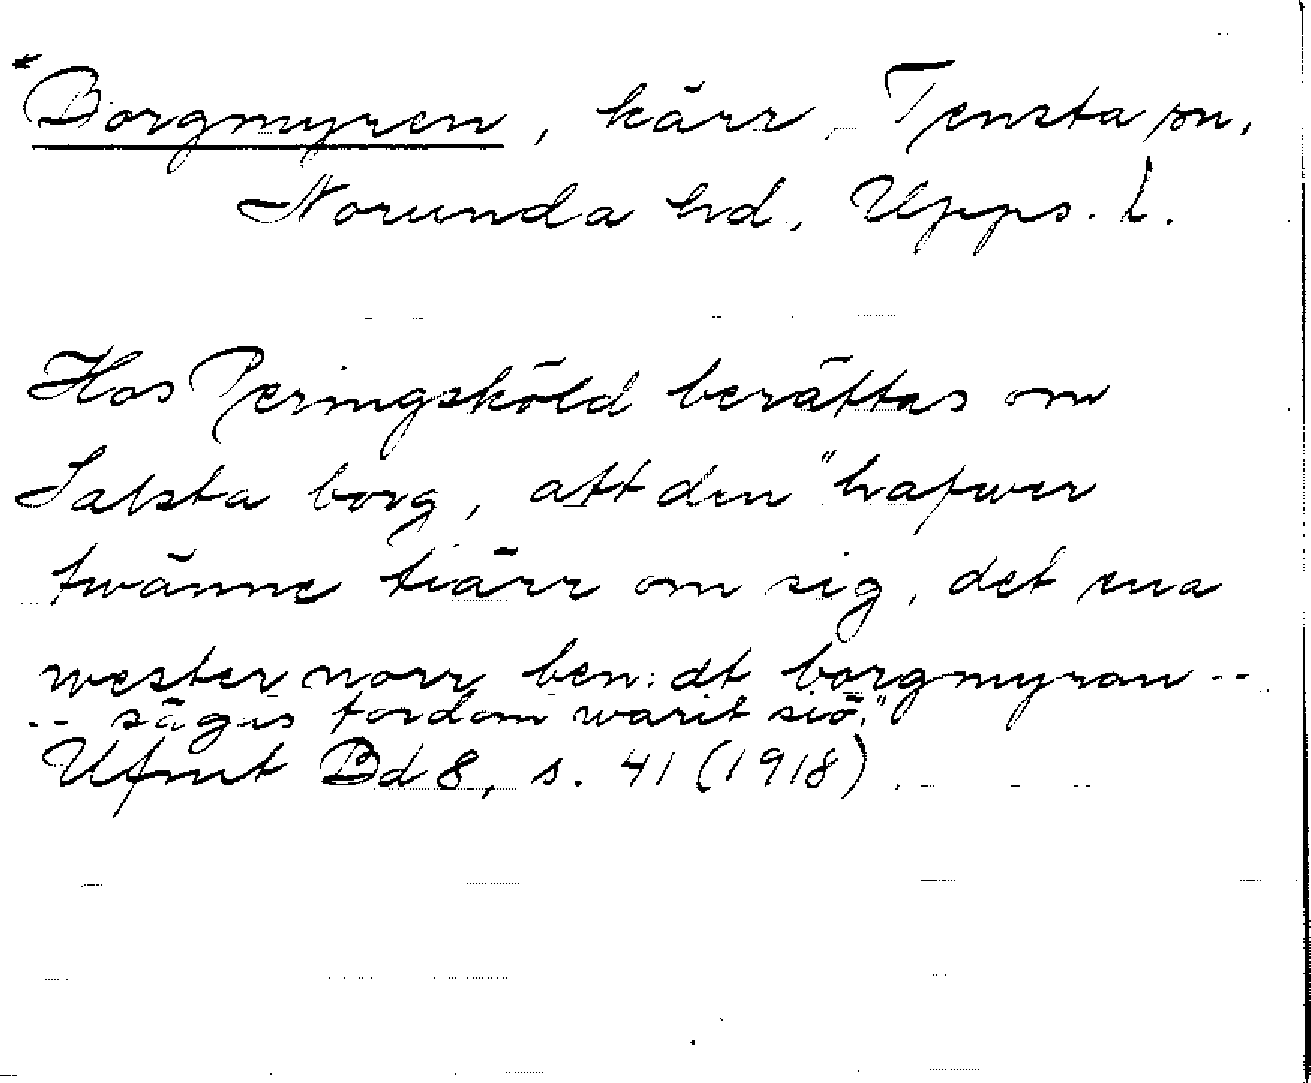 *Borgmyren, kärr, Tensta sn,
Norunda hd, Upps. l.
Hos Peringsköld berättas om
Salsta borg, att den "hafwer
twänne tiärr om sig, det ena
wester norr ben:dt borgmyran --
-- sägis fordom warit siö."
Ufmt Bd 8, s. 41 (1918)